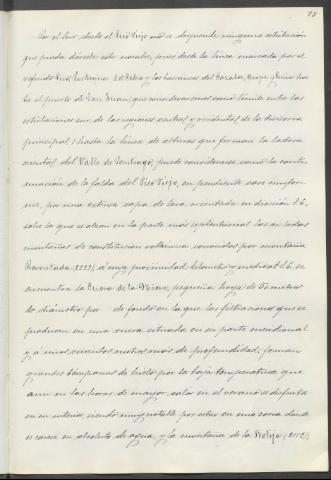 Por el Sur desde el Pico Viejo no se desprende ninguna estribación
que pueda dársele este nombre, pues desde la línea marcada por el
referido Pico, los hornitos del Echeo y los barrancos del
to el puerto de San Juan (que consideraremos como límite entre las
estribaciones sur de las regiones central y occidental de la divisoria
principal) hasta la línea de alturas que forman la ladera
oriental del Valle de Santiago, puede considerarse como la conti-
nuación de la falda del Pico Viejo, en pendiente casi unifor-
me, por una extensa capa de lava orientada en dirección S.O.
sobre la que se alzan en la parte más septentrional las aisladas
montañas de constitución volcánica conocidas por montaña
Reventada 2222), a cuya proximidad, kilómetro y medio al S.O. se
encuentra la Cueva de la Nieve, pequeña hoya de 50 metros
de diámetro por - de fondo en la que las filtraciones que se
producen en una cueva situada en su parte meridional
y a unos cuantos metros más de profundidad, forman
grandes témpanos de hielo por la baja temperatura que
aun en las horas de mayor calor en el verano se disfruta
en su interior, siendo muy notable por estar en una zona donde
se carece en absoluto de agua, y la montaña de la Botija (2112),